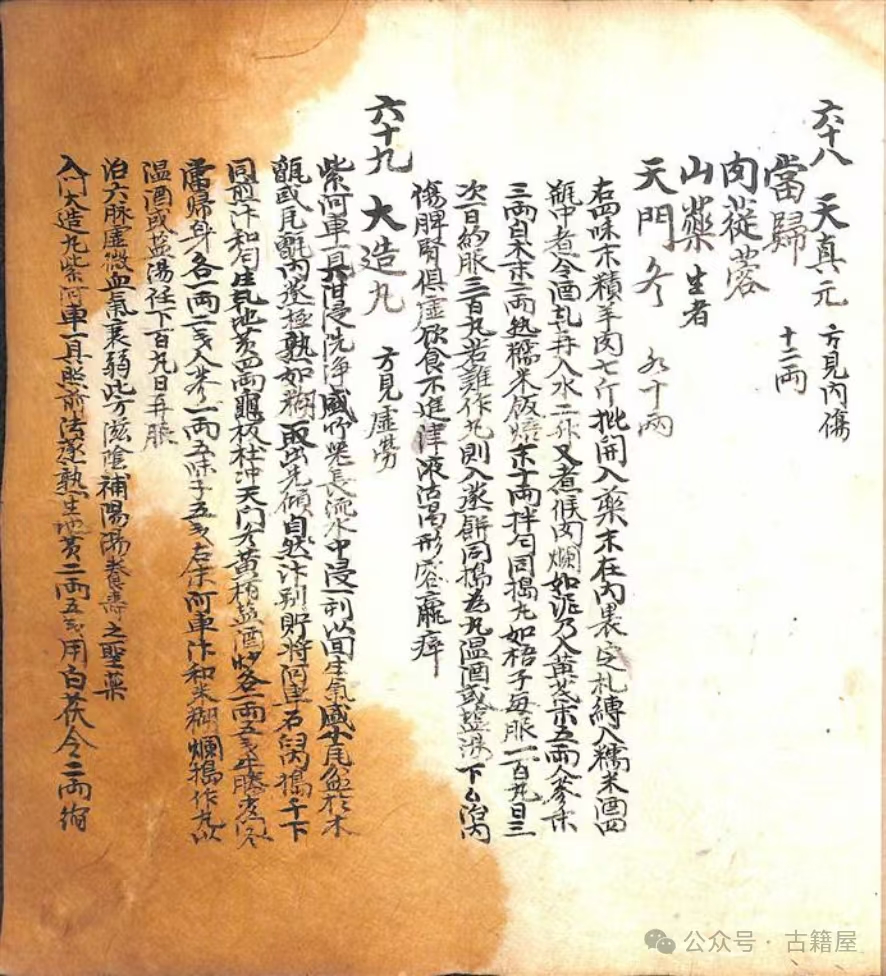 六十八 天真元 方見內傷
當歸 十二兩
肉蓯蓉
山藥 生者
天門冬 各十兩
右四味末精羊肉七斤批開入藥末在內裹定扎縛入糯米酒四
瓶中煮令酒乹再入水二升又煮候肉爛如泥乃入黃芪末五兩人參末
三兩白朮末二兩熟糯米飯焙末十兩拌勻同搗丸如梧子每服一百丸日三
次一日約服三百丸若難作丸則入蒸餅同搗為丸溫酒或塩湯下 治內
傷脾腎俱虛飲食不進津液沽渴形容羸瘁
六十九 大造丸 方見虛勞
紫河車一具泔浸洗淨盛竹器長流水中浸一刻以回生氣盛于瓦盆於木
甑或瓦甑內蒸極熟如糊取出先傾自然汁別貯將河車石臼內搗千下
同前汁和勻生乹地黃四兩龜板杜冲天門冬黃柏塩酒炒各一兩五戔牛膝麦冬
當歸身各一兩二戔人參一兩五味子五戔右末河車汁和米糊爛搗作丸以
溫酒或盐湯任下百丸日再服
治六脉虛微血氣衰弱此方滋陰補陽陽養壽之聖藥
入門大造丸紫河車一具照前法蒸熟生地黃二兩五戔用白茯令二兩